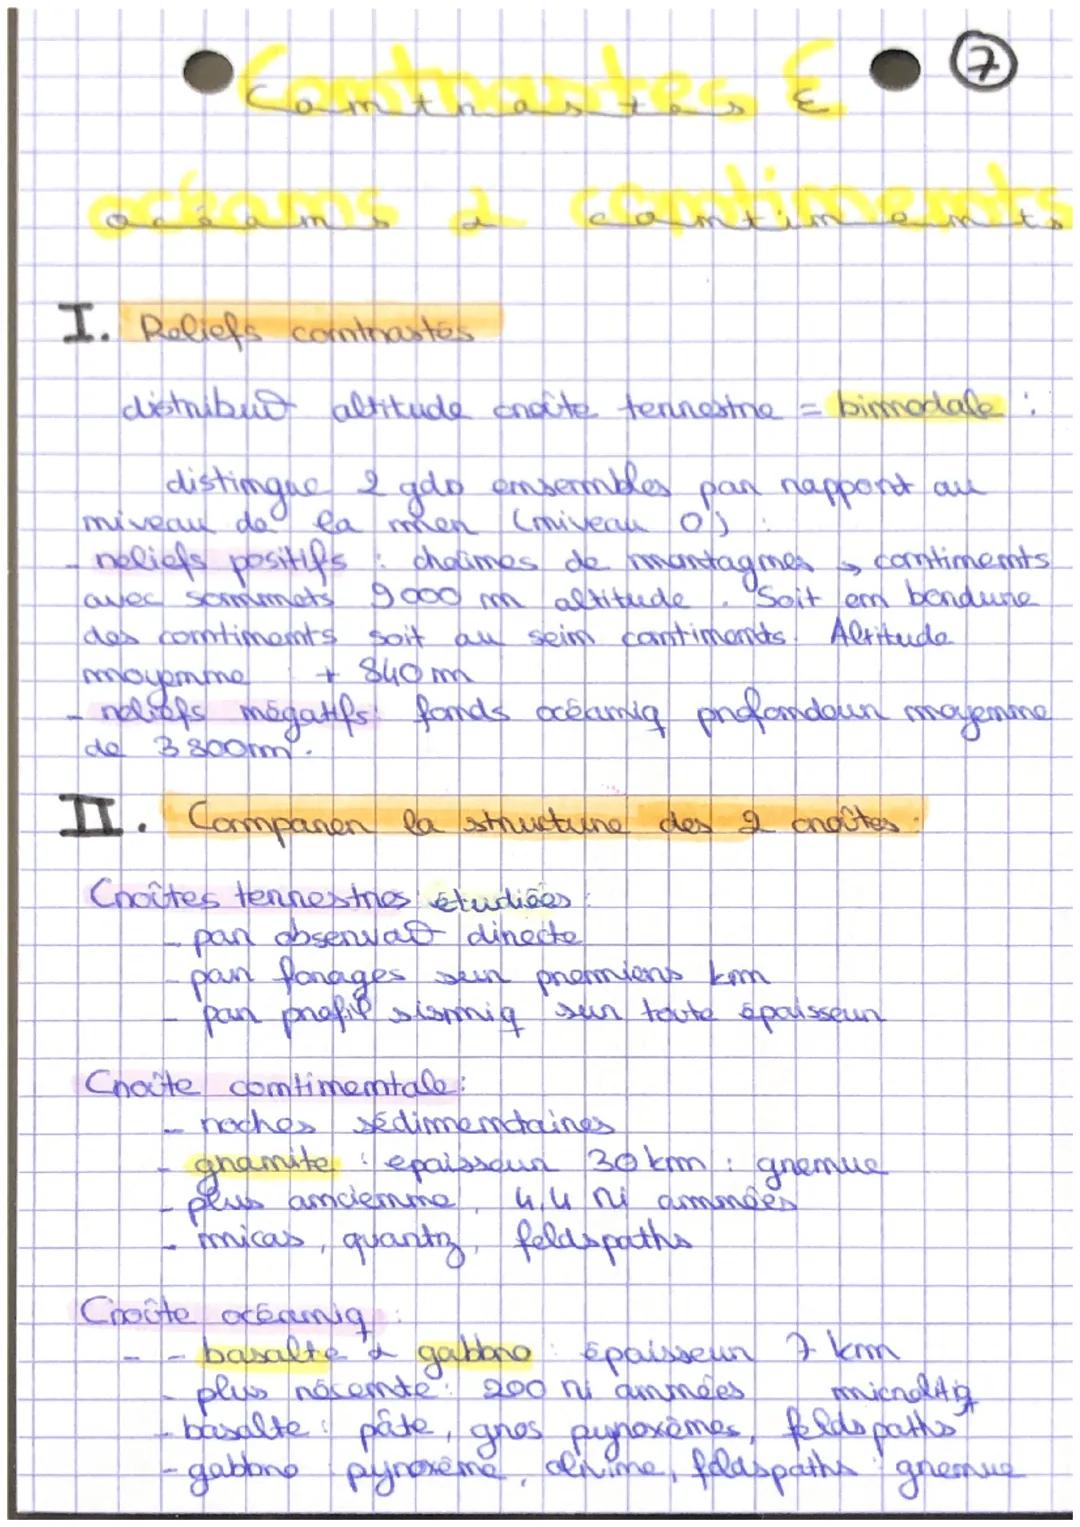 7
Contrastes E
océans & continents
I. Reliefs contrastés
distribut° altitude croûte terrestre = bimodale :
distingue 2 gds ensembles par rapport au
niveau de la mer (niveau 0) :
- reliefs positifs : chaînes de montagnes → continents
avec sommets 9000 m altitude. Soit en bordure
des continents soit au sein continents. Altitude
moyenne : + 840 m
- reliefs négatifs : fonds océaniq profondeur moyenne
de 3800m.
II. Comparer la structure des 2 croûtes :
Croûtes terrestres étudiées :
- par observat° directe
- par forages sur premiers km
- par profil sismiq sur toute épaisseur
Croûte continentale :
- roches sédimentaires
- granite : épaisseur 30 km : grenue
- plus ancienne, 4,4 Mi années
- micas, quartz, feldspaths
Croûte océaniq :
- - basalte & gabbro : épaisseur 7 km
- plus récente : 200 Mi années
microlitiq
- basalte : pâte, gros pyroxèmes, feldspaths
- gabbro pyroxème, olivine, feldspaths : grenue